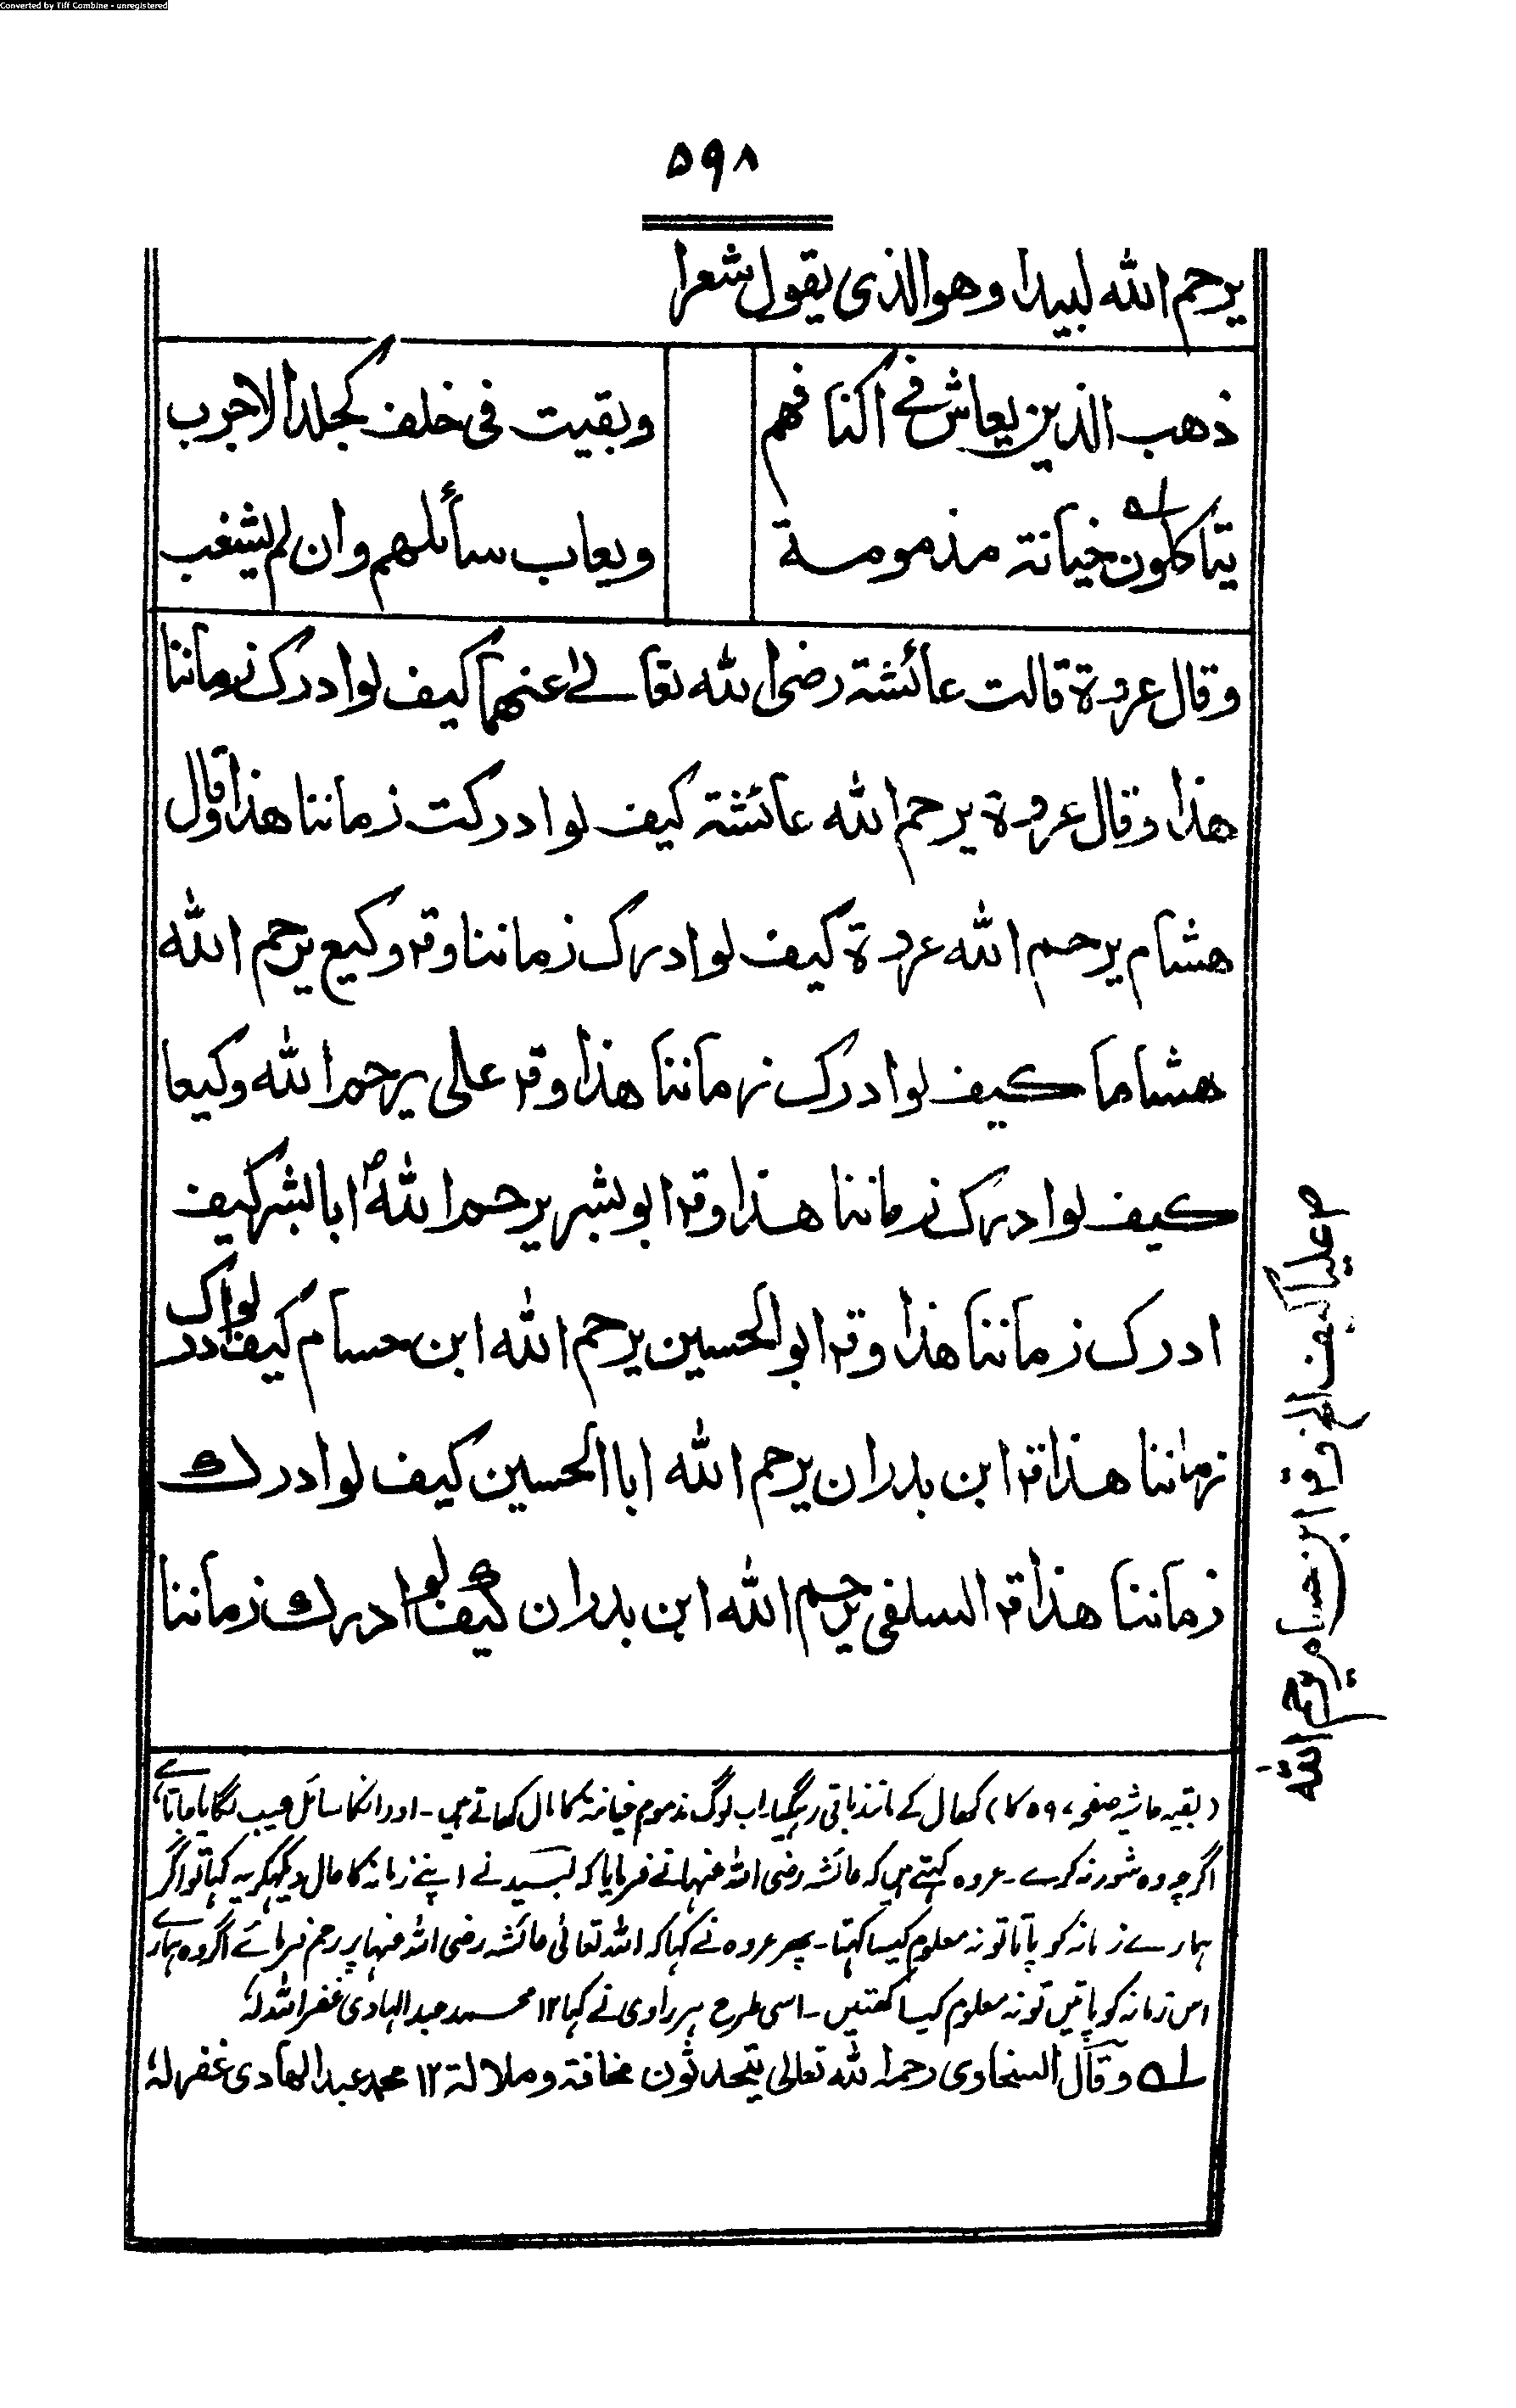 Converted by Tiff Combine - unregistered
۵۹۸
يرحم الله لبيدا وهو الذى يقول شعرا
ذهب الذين يعاش فے اكنافهم	وبقيت فى خلف كجلد الاجرب
يتأكلون خيانة مذمومة	ويعاب سائلهم وان لم يشغب
وقال عروة قالت عائشة رضى الله تعالے عنهما كيف لو ادرك زماننا
هذا وقال عروة يرحم الله عائشة كيف لو ادركت زماننا هذا وقال
هشام يرحم الله عروة كيف لو ادرك زماننا وقم وكيع يرحم الله
هشاما كيف لو ادرك زماننا هذا وقم على يرحم الله وكيعا
كيف لو ادرك زماننا هذا وقم ابو بشر يرحم الله ابا بشر كيف
ادرك زماننا هذا وقم ابو الحسين يرحم الله ابن حسام كيف لو ادرك
زماننا هذا قم ابن بدران يرحم الله ابا الحسين كيف لو ادرك
زماننا هذا قم السلفى يرحم الله ابن بدران كيف لو ادرك زماننا
عليا كيف الخ وقم ابن حسام يرحم الله
(بقیہ حاشیہ صفحہ ۵۹۷ کا) کھال کے مانند باقی رہگیا۔ اب لوگ مذموم خیانتہ کا مال کھاتے ہیں۔ اور انکا سائل عیب لگایا جاتا ہے
اگرچہ وہ شور نہ کرے۔ عروہ کہتے ہیں کہ عائشہ رضی اللہ عنہا نے فرمایا کہ لبید نے اپنے زمانہ کا حال دیکھکر یہ کہا تو اگر
ہمارے زمانہ کو پاتا تو نہ معلوم کیسا کہتا۔ پھر عروہ نے کہا کہ اللہ تعالیٰ عائشہ رضی اللہ عنہا پر رحم فرمائے اگر وہ ہمارے
اس زمانہ کو پاتیں تو نہ معلوم کیسا کہتیں۔ اسی طرح ہر راوی نے کہا ۱۲ محمد عبد الہادی غفر اللہ لہٗ
لہ وقال السخاوى رحمه الله تعالى يتحدثون مخافة وملالة ۱۲ محمد عبد الهادى غفر له